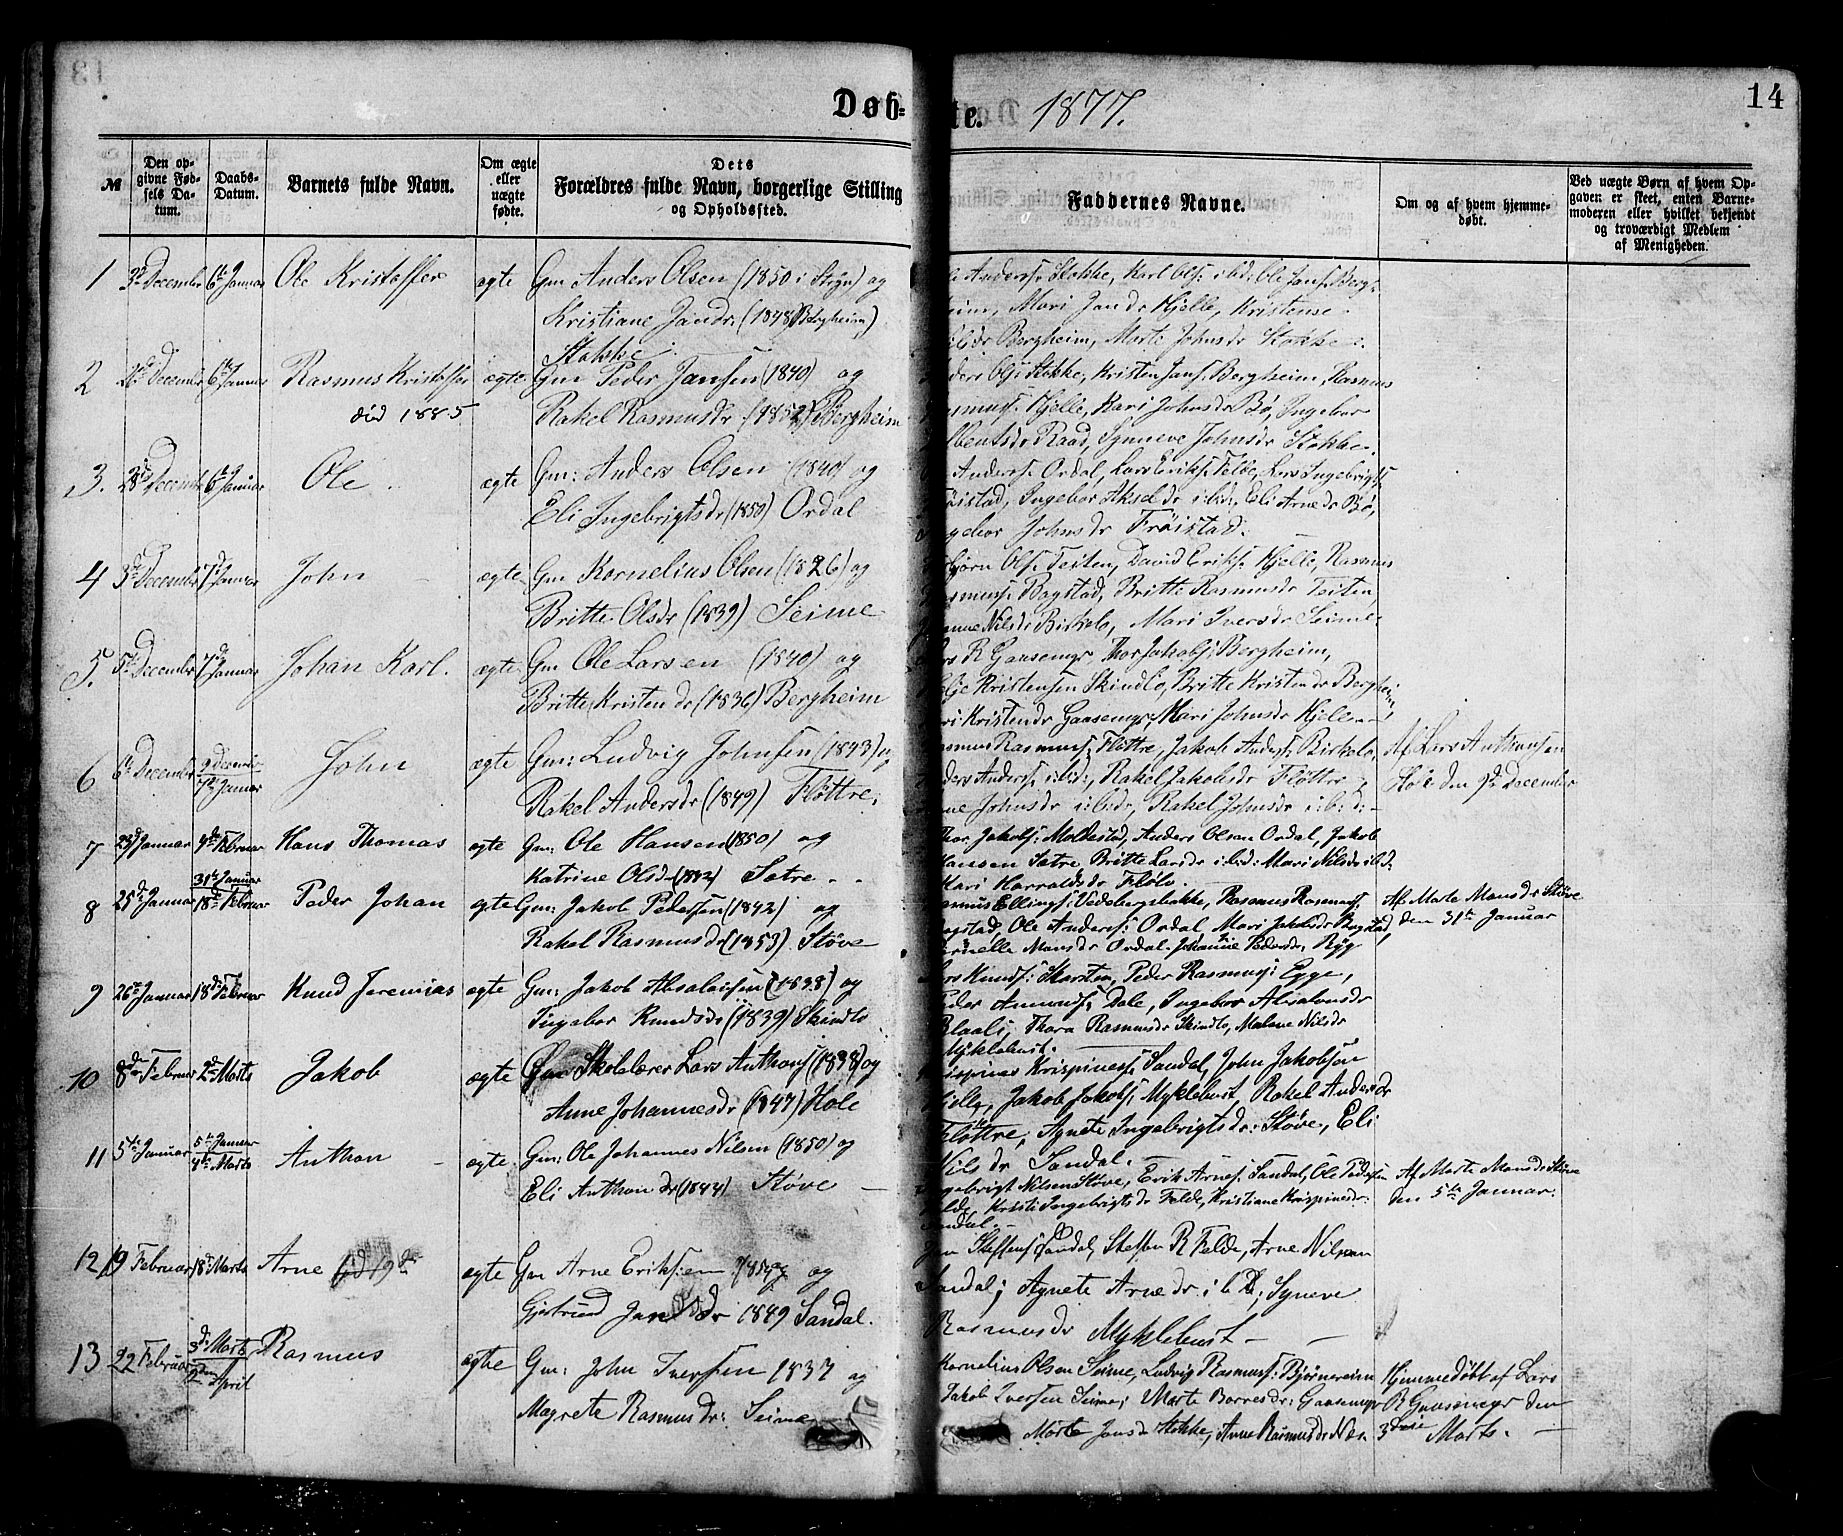 14
Døbte. 1877.
№
Den opgivne Fødsels Datum.
Daabs-Datum.
Barnets fulde Navn.
Om ægte eller uægte fødte.
Dets Forældres fulde Navn, borgerlige Stilling og Opholdssted.
Faddernes Navne.
Om og af hvem hjemmedøbt.
Ved uægte Børn af hvem Opgaven er skeet, enten Barnemoderen eller hvilket bekjendt og troværdigt Medlem af Menigheden.
1 3die December 6te Januar Ole Kristoffer ægte Gm Anders Olsen (1850 i Stryn) og
Kristiane Jansdr (1848 Bergheim)
Stokke.
Anders: Stokke, Karl Ols: ibd: Ole Jans: Berg-
heim, Mari Jansdr Hjelle, Kristense
Bergheim, Marte Johnsdr Stokke.
2 December 6te Januar Rasmus Kristoffer ægte Gm Peder Jansen (1840) og
død 1885
Rakel Rasmusdr (1852) Bergheim
Ols: Stokke, Kristen Jans: Bergheim, Rasmus
Hjelle, Kari Johnsdr Bø, Ingebor
Raad, Synneve Johnsdr Stokke.
3. 28de December 6te Januar Ole ægte Gm: Anders Olsen (1840) og
Eli Ingebrigtsdr (1850) Ordal
Anders: Ordal, Lars Eriks: Felde, Lars Ingebrigts:
Frøistad, Ingebor Akseldr ibd:, Eli Arnedr Bø,
Ingebor Johnsdr Frøistad.
4 3die December 7de Januar John ægte Gm Kornelius Olsen (1826) og
Britte Olsdr (1839) Seime
Ols: Teiten, David Eriks: Hjelle, Rasmus
Rasmus: Bogstad, Britte Rasmusdr Teiten,
Nilsdr Birkelo, Mari Iversdr Seime
5. 5te December 7de Januar Johan Karl. ægte Gm Ole Larsen (1840) og
Britte Kristendr (1836) Bergheim
R Gaasemyr, Thor Jakobs: Bergheim,
Kristensen Skindlo, Britte Kristendr Bergheim,
Kristendr Gaasemyr, Mari Johnsdr Hjelle
6 6te December 9 December
7de Januar John ægte Gm: Ludvig Johnsen (1843) og
Rakel Andersdr (1849) Fløttre,
Rasmus Rasmus: Fløttre, Jakob Anders: Birkelo,
Anders Anders: ibd:, Rakel Jakobsdr Fløttre
Johnsdr ibd:, Rakel Johnsdr ibd:
Af Lars Anthonsen
Hole den 9de December
7 23d Januar 4de Februar Hans Thomas ægte Gm: Ole Hansen (1850) og
Katrine Olsdr Sætre
Thor Jakobs: Moldestad, Anders Olsen Ordal, Jakob
Hansen Sætre Britte Larsdr ibd: Mari Nilsdr ibd:
Kari Harraldsdr Fløl.
8 25de Januar 31te Januar
18de Februar Peder Johan ægte Gm: Jakob Pedersen (1842) og
Rakel Rasmusdr (1853) Støve
Rasmus Ellings: Vedebergsbakke, Rasmus Rasmus:
Bogstad, Ole Anders: Ordal, Mari Jakobsdr Bogstad,
Monsdr Ordal. Johanne Pedersdr Ryg
Af Marte Monsdr Støve
den 31te Januar
9 26te Januar 18de Februar Knud Jeremias ægte Gm: Jakob Absalonsen (1838) og
Ingebor Knudsdr (1839) Skindlo
Lars Knuds: Karsten, Peder Rasmus: Egge,
Peder Amunds: Dale, Ingebor Absalonsdr
Blaali, Thora Rasmusdr Skindlo, Malene Nilsdr
Myklebust.
10 8de Februar 2de Marts Jakob ægte Gm Skolelærer Lars Anthons: (1838) og
Anne Johannesdr (1847) Hole
Krispinus Krispinus: Sandal, John Jakobson
Hjelle, Jakob Jakobs: Myklebust, Rakel Andersdr
Fløttre, Agnete Ingebrigtsdr: Støve, Eli
Nilsdr Sandal.
11 5te Januar 5te Januar
4de Marts Anthon ægte Gm: Ole Johannes Nilsen (1850) og
Eli Anthondr (1844) Støve
Ingebrigt Nilsen Støve, Erik Arnes: Sandal, Ole Pedersen
Felde, Kristi Ingebrigtsdr Felde, Kristiane Krispinesdr:
Sandal.
Af Marte Monsdr Støve
den 5te Januar.
12 19 Februar 18de Marts Arne ægte Gm Arne Eriksen og
Gjertrud Jansdr 1849 Sandal.
Jan Steffens: Sandal, Steffen R Felde, Arne Nilsen
Sandal, Agnete Arnedr ibd, Synneve
Rasmusdr Myklebust
13 22 Februar 3die Marts
2den April Rasmus ægte Gm: John Iversen 1837 og
Magrete Rasmusdr: Seime
Kornelius Olsen Seime, Ludvig Rasmus: Bjørnereim
Jakob Iversen Seime, Marte Borresdr: Gaasemyr
Marte Jansdr Stokke, Anne Rasmusdr Næs.
Hjemmedøbt af Lars
R Gaasemyr den
3die Marts.